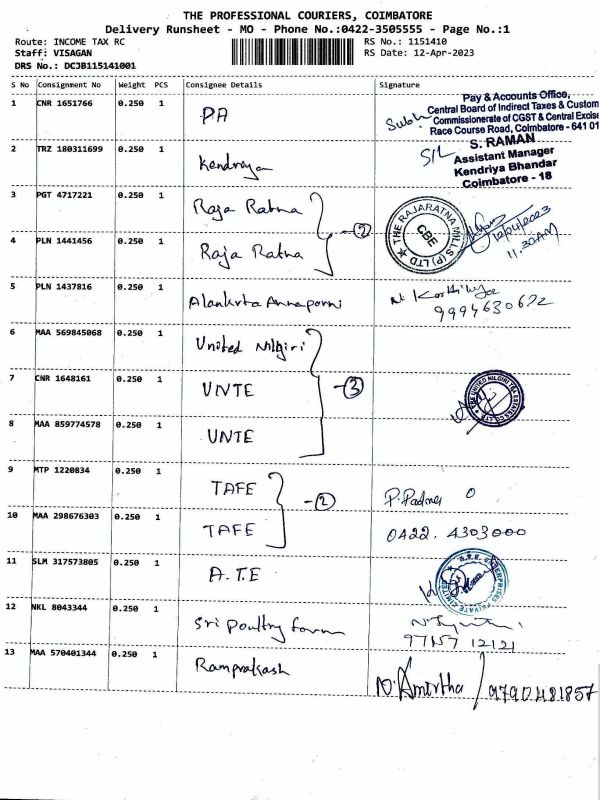 THE PROFESSIONAL COURIERS, COIMBATORE
Delivery Runsheet - MO - Phone No.:0422-3505555 - Page No.:1
Route: INCOME TAX RC RS No.: 1151410
Staff: VISAGAN RS Date: 12-Apr-2023
DRS No.: DCJB115141001
S No Consignment No Weight PCS Consignee Details Signature
1 CNR 1651766 0.250 1 PA
Pay & Accounts Office,
Central Board of Indirect Taxes & Custom
Commissionerate of CGST & Central Excise
Race Course Road, Coimbatore - 641 01
2 TRZ 180311699 0.250 1 Kendraya
S. RAMAN
Assistant Manager
Kendriya Bhandar
Coimbatore - 18
3 PGT 4717221 0.250 1 Raja Ratna
② THE RAJARATNA MILLS (P) LTD CBE 12/04/2023
11.30AM
4 PLN 1441456 0.250 1 Raja Ratna
5 PLN 1437816 0.250 1 Alankrta Annaporni
9994630672
6 MAA 569845068 0.250 1 United Nilgiri
7 CNR 1648161 0.250 1 UNTE - ③
THE UNITED NILGIRI TEA ESTATES CO
8 MAA 859774578 0.250 1 UNTE
9 MTP 1220834 0.250 1 TAFE - ② P. Padma
10 MAA 298676303 0.250 1 TAFE 0422. 4303000
11 SLM 317573805 0.250 1 A.T.E
ENTERPRISES PRIVATE LIMITED
12 NKL 8043344 0.250 1 Sri Poultry farm
97157 12121
13 MAA 570401344 0.250 1 Ramprakash N. Amirtha / 9790481857